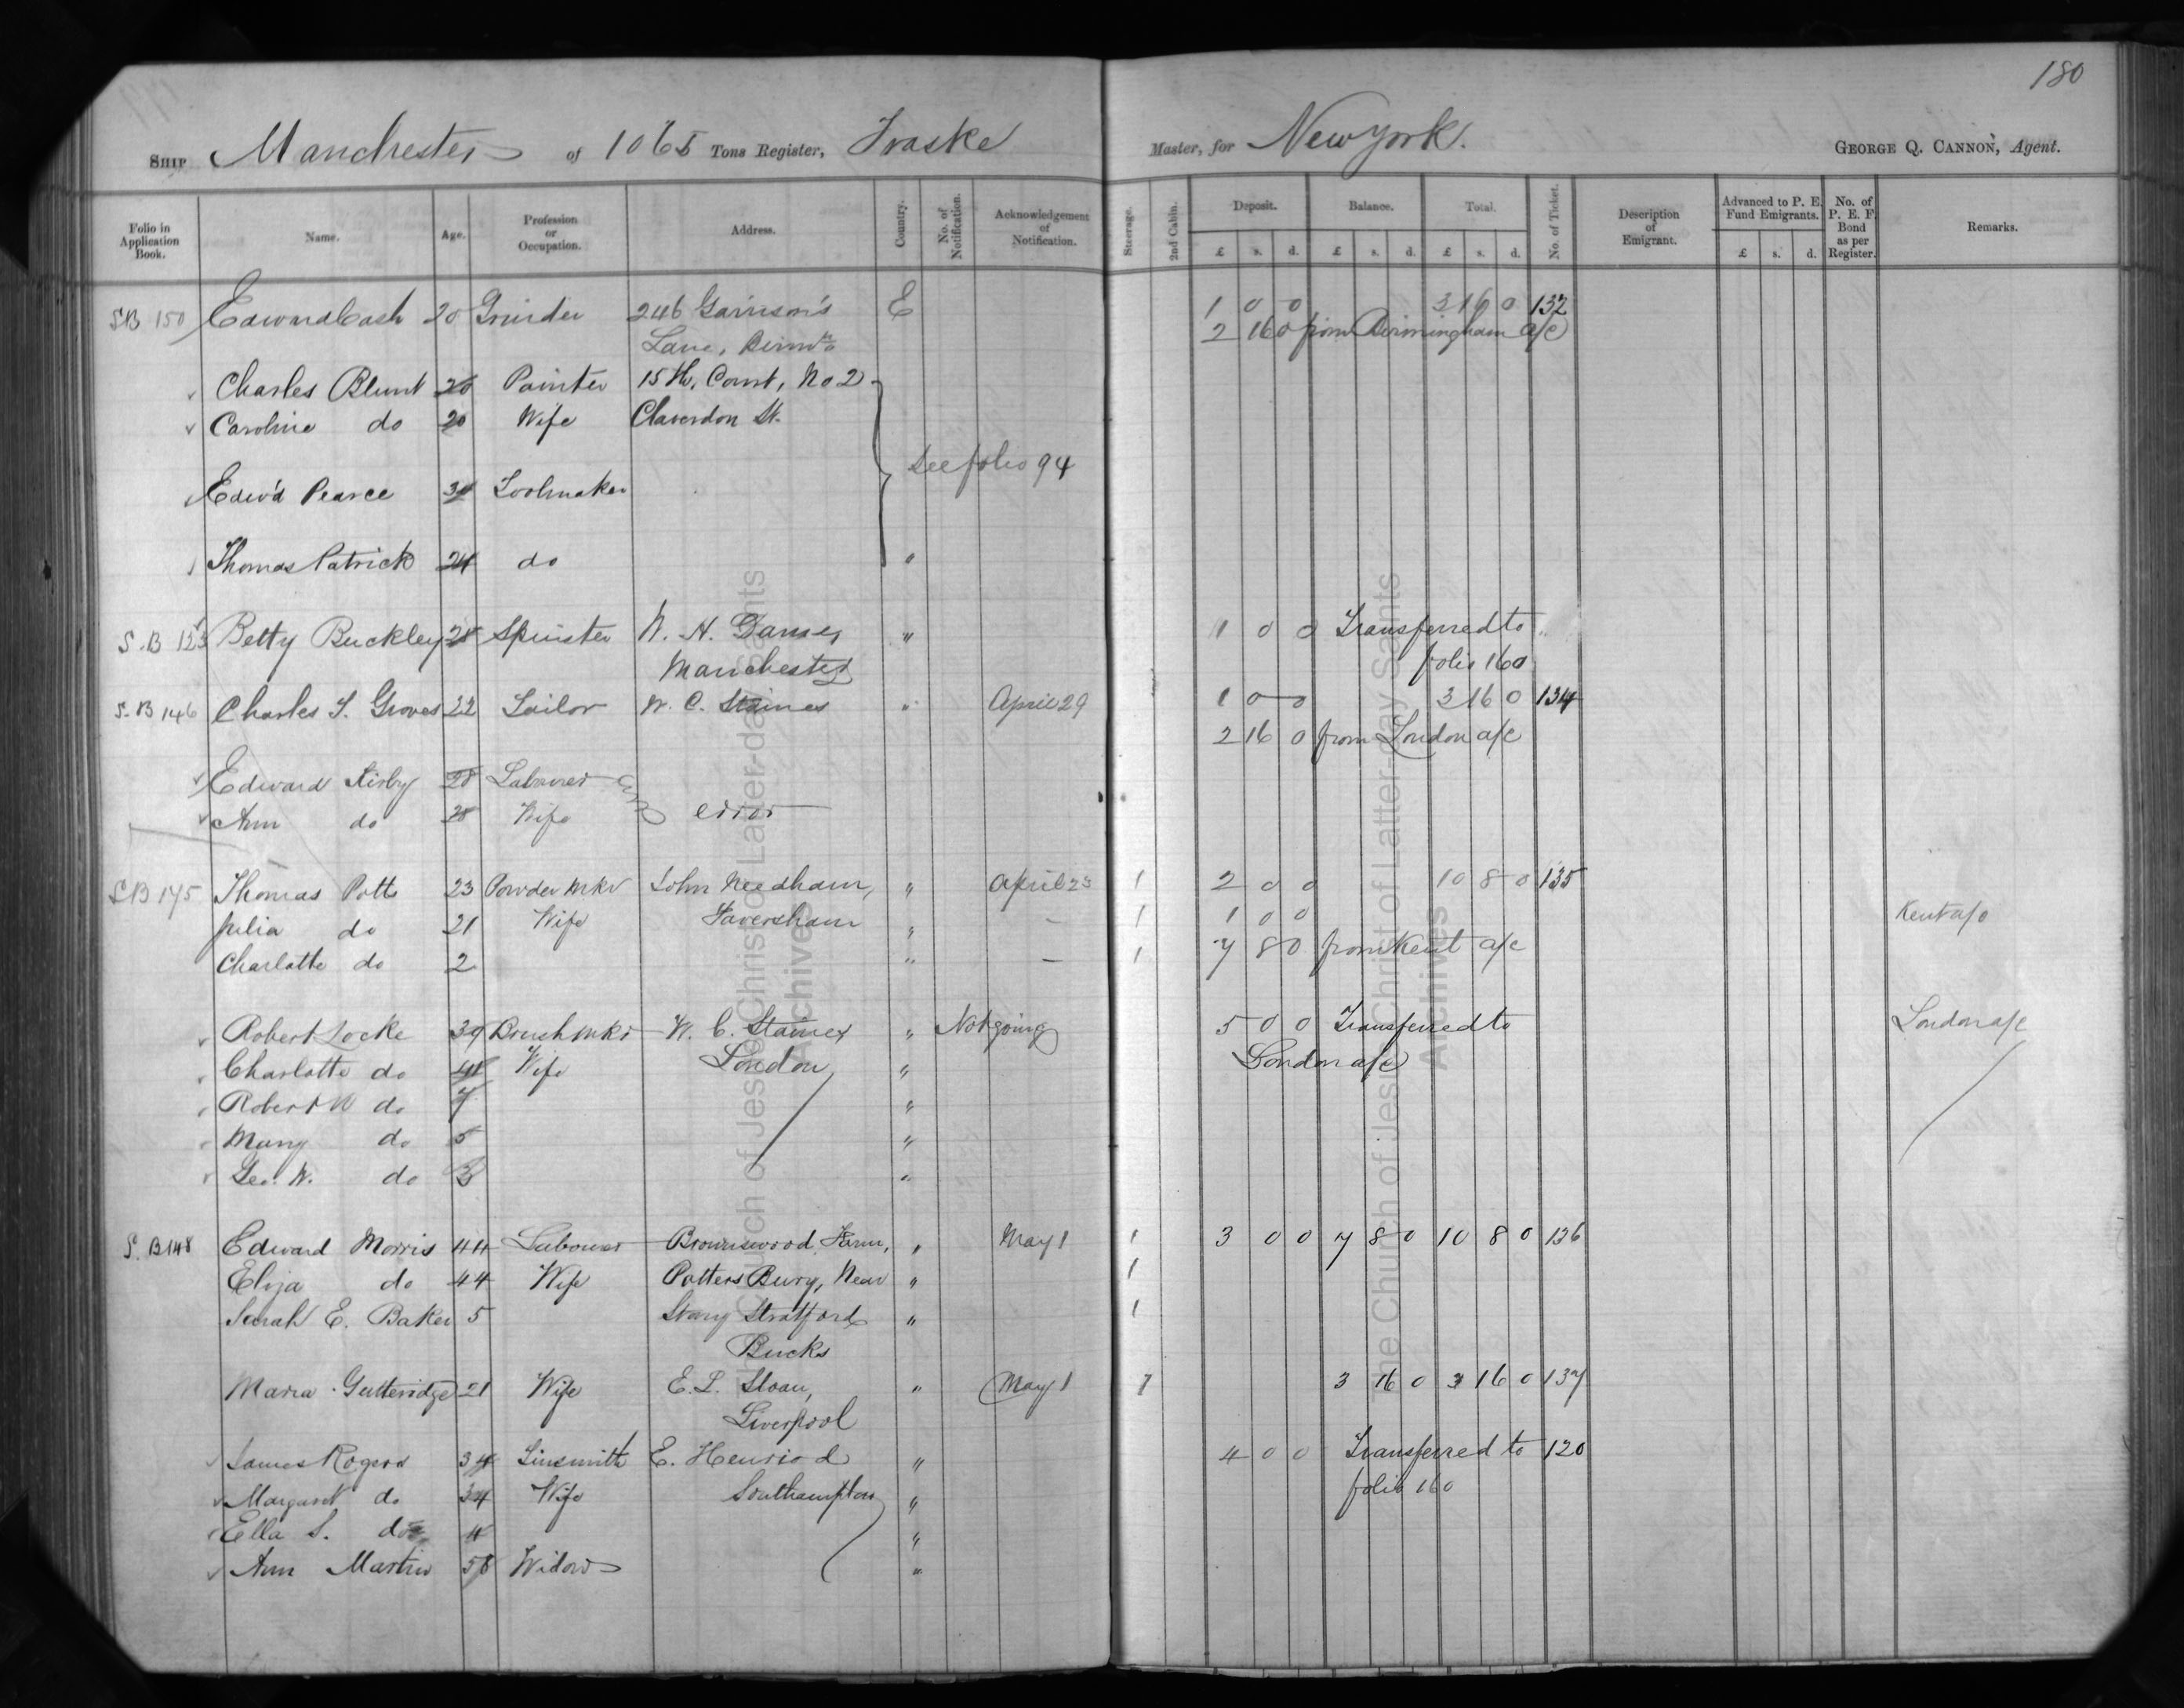 180
SHIP Manchester of 1065 Tons Register, Traske Master, for New York. GEORGE Q. CANNON, Agent.
Folio in Application Book. Name. Age. Profession or Occupation. Address. Country. No. of Notification. Acknowledgement of Notification. Steerage. 2nd Cabin. Deposit. £ s. d. Balance. £ s. d. Total. £ s. d. No. of Ticket. Description of Emigrant. Advanced to P. E. Fund Emigrants. £ s. d. No. of P. E. F. Bond as per Register. Remarks.
SB 150 Edward Cash 20 Grinder 246 Garrison's E 1 0 0 3 16 0 132
Lane, Birmm 2 16 0 from Birmingham a/c
Charles Blunt 20 Painter 15 H, Court, No 2
Caroline do 20 Wife Claverdon St.
See folio 94
Edwd Pearce 34 Toolmaker
Thomas Patrick 24 do "
S.B 153 Betty Buckley 28 Spinster W. H. " 1 0 0 Transferred to
Manchester folio 160
S.B 146 Charles S. Groves 22 Tailor W. C. Staines " April 29 1 0 0 3 16 0 134
2 16 0 from London a/c
Edward Kirby 28 Labourer
Ann do 28 Wife error
SB 175 Thomas Potts 23 Powder Mkr John Needham, " April 23 1 2 0 0 10 8 0 135
Julia do 21 Wife Faversham " – 1 1 0 0 Kent a/c
Charlotte do 2 " – 1 7 8 0 from Kent a/c
Robert Locke 39 Brush Mkr W. C. Staines " Not going 5 0 0 Transferred to London a/c
Charlotte do 41 Wife London " London a/c
Robert W do 7 "
Mary do 5 "
Geo. W. do 3 "
S. B 148 Edward Morris 44 Labourer Brownswood Farm, " May 1 1 3 0 0 7 8 0 10 8 0 136
Eliza do 44 Wife Potters Bury, Near " 1
Sarah E. Baker 5 Stony Stratford " 1
Bucks
Maria Gutteridge 21 Wife E. L. Sloan, " May 1 1 3 16 0 3 16 0 137
Liverpool
James Rogers 34 Tinsmith E. Henriod " 4 0 0 Transferred to 120
Margaret do 34 Wife Southampton " folio 160
Ella S. do 4 "
Ann Martin 58 Widow "
The Church of Jesus Christ of Latter-day Saints
Archives
The Church of Jesus Christ of Latter-day Saints
Archives